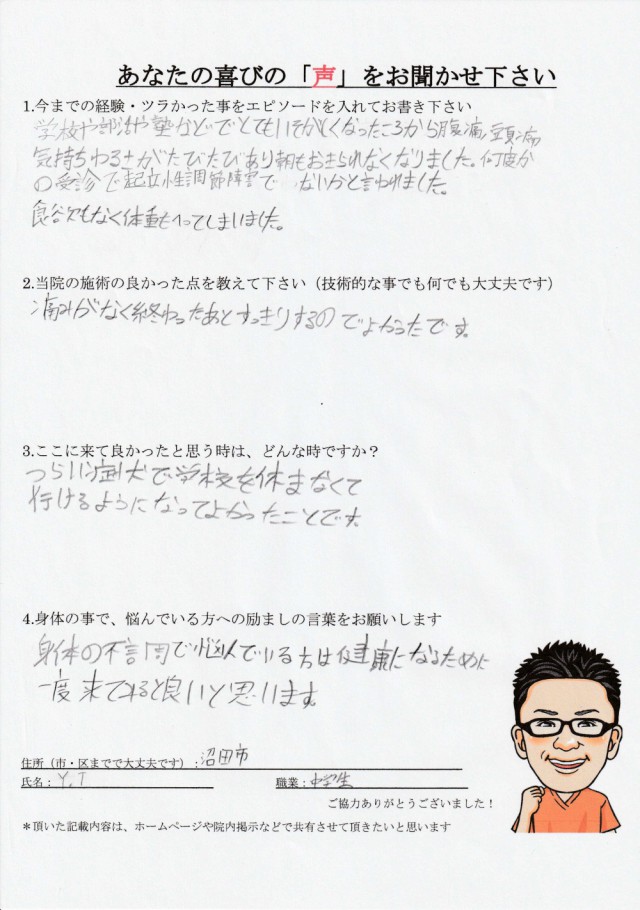 あなたの喜びの「声」をお聞かせ下さい
1.今までの経験・ツラかった事をエピソードを入れてお書き下さい
学校や部活や塾などでとてもいそがしくなったころから腹痛、頭痛
気持ちわるさがたびたびあり朝もおきられなくなりました。何度か
の受診で起立性調節障害で ないかと言われました。
食欲もなく体重もへってしまいました。
2.当院の施術の良かった点を教えて下さい(技術的な事でも何でも大丈夫です)
痛みがなく終わったあとすっきりするのでよかったです。
3.ここに来て良かったと思う時は、どんな時ですか?
つらい症状で学校を休まなくて
行けるようになってよかったことです。
4.身体の事で、悩んでいる方への励ましの言葉をお願いします
身体の不調で悩んでいる方は健康になるために
一度来てみると良いと思います。
住所(市・区までで大丈夫です):沼田市
氏名:Y.T 職業:中学生
ご協力ありがとうございました!
*頂いた記載内容は、ホームページや院内掲示などで共有させて頂きたいと思います